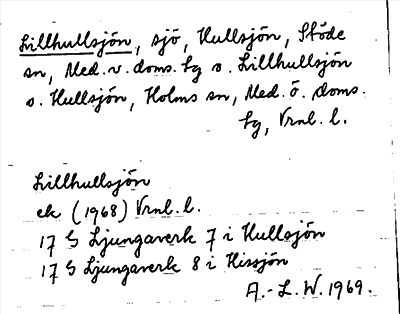 Lillhullsjön, sjö, Hullsjön, Stöde
sn, Med. v. doms. tg o. Lillhullsjön
o. Hullsjön, Holms sn, Med. ö. doms.
tg, Vrnl. l.
Lillhullsjön
ek (1968) Vrnl. l.
17 G Ljungaverk 7 i Hullsjön
17 G Ljungaverk 8 i Hissjön
A.-L. W. 1969.